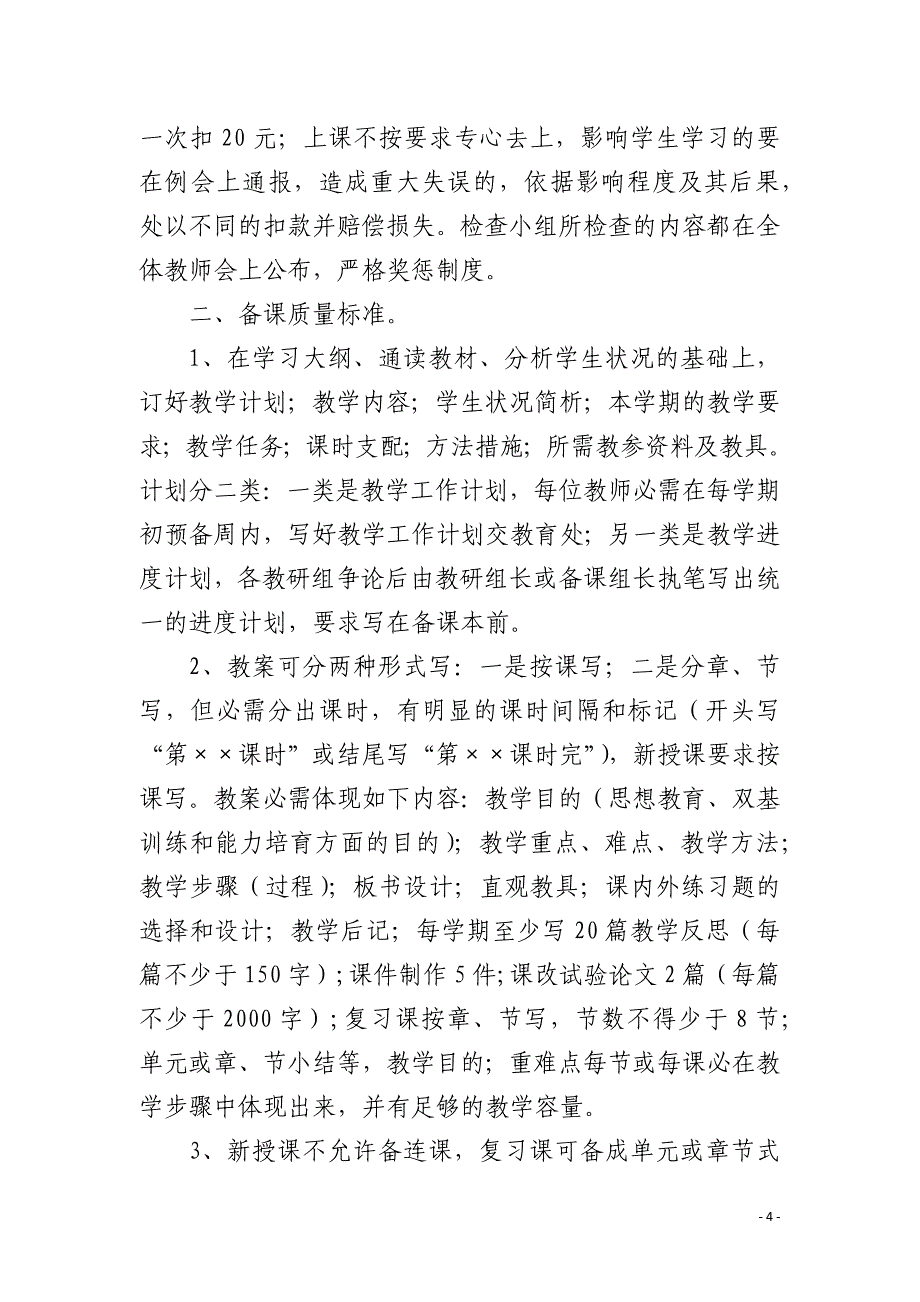 一次扣 20 元；上课不按要求专心去上，影响学生学习的要
在例会上通报，造成重大失误的，依据影响程度及其后果，
处以不同的扣款并赔偿损失。检查小组所检查的内容都在全
体教师会上公布，严格奖惩制度。
二、备课质量标准。
1、在学习大纲、通读教材、分析学生状况的基础上，
订好教学计划；教学内容；学生状况简析；本学期的教学要
求；教学任务；课时支配；方法措施；所需教参资料及教具。
计划分二类：一类是教学工作计划，每位教师必需在每学期
初预备周内，写好教学工作计划交教育处；另一类是教学进
度计划，各教研组争论后由教研组长或备课组长执笔写出统
一的进度计划，要求写在备课本前。
2、教案可分两种形式写：一是按课写；二是分章、节
写，但必需分出课时，有明显的课时间隔和标记（开头写
“第××课时”或结尾写“第××课时完”），新授课要求按
课写。教案必需体现如下内容：教学目的（思想教育、双基
训练和能力培育方面的目的）；教学重点、难点、教学方法；
教学步骤（过程）；板书设计；直观教具；课内外练习题的
选择和设计；教学后记；每学期至少写 20 篇教学反思（每
篇不少于 150 字）；课件制作 5 件；课改试验论文 2 篇（每篇
不少于 2000 字）；复习课按章、节写，节数不得少于 8 节；
单元或章、节小结等，教学目的；重难点每节或每课必在教
学步骤中体现出来，并有足够的教学容量。
3、新授课不允许备连课，复习课可备成单元或章节式
- 4 -